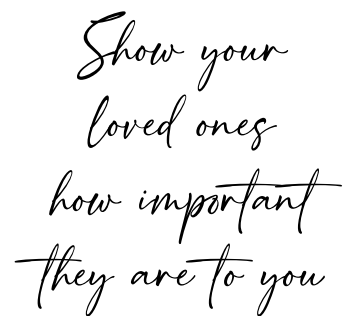 Show your
loved ones
how important
they are to you